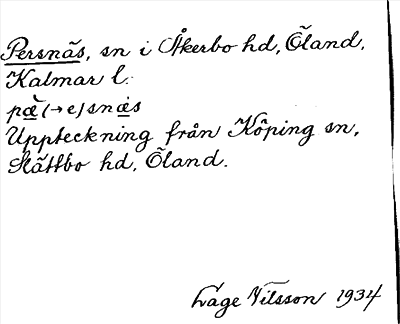 Persnäs, sn i Åkerbo hd, Öland,
Kalmar l.
pæ̀(→e)snȧs
Uppteckning från Köping sn,
Slättbo hd, Öland.
Låge Nilsson 1934